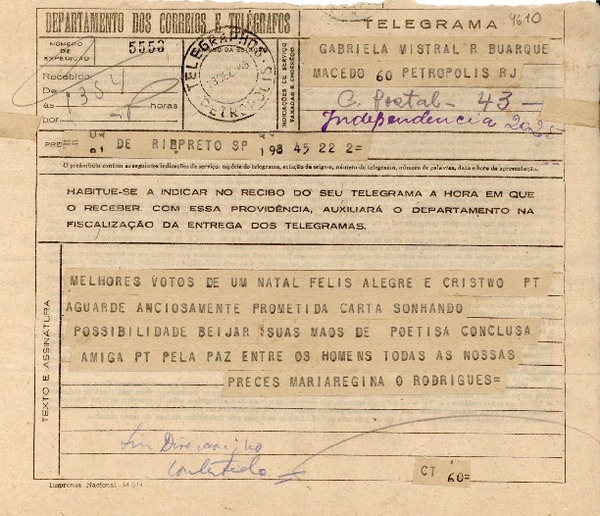 DEPARTAMENTO DOS CORREIOS E TELÉGRAFOS
TELEGRAMA
4610
NÚMERO DE EXPEDIÇÃO
5553
Recebido:
De
às
1354
horas
por
TELEGRAPHOS
PETROPOLIS
INDICAÇÕES DE SERVIÇO TAXADAS E ENDERÊÇO
GABRIELA MISTRAL R BUARQUE
MACEDO 60 PETROPOLIS RJ
C. Postal - 43 -
Independencia 2025
PRE
DE RIBPRETO SP 198 45 22 2=
O preâmbulo contém as seguintes indicações de serviço: espécie do telegrama, estação de origem, número do telegrama, número de palavras, data e hora da apresentação.
HABITUE-SE A INDICAR NO RECIBO DO SEU TELEGRAMA A HORA EM QUE
O RECEBER. COM ESSA PROVIDÊNCIA, AUXILIARÁ O DEPARTAMENTO NA
FISCALIZAÇÃO DA ENTREGA DOS TELEGRAMAS.
TEXTO E ASSINATURA
MELHORES VOTOS DE UM NATAL FELIS ALEGRE E CRISTWO PT
AGUARDE ANCIOSAMENTE PROMETIDA CARTA SONHANDO
POSSIBILIDADE BEIJAR SUAS MAOS DE POETISA CONCLUSA
AMIGA PT PELA PAZ ENTRE OS HOMENS TODAS AS NOSSAS
PRECES MARIAREGINA O RODRIGUES=
CT 60=
Imprensa Nacional